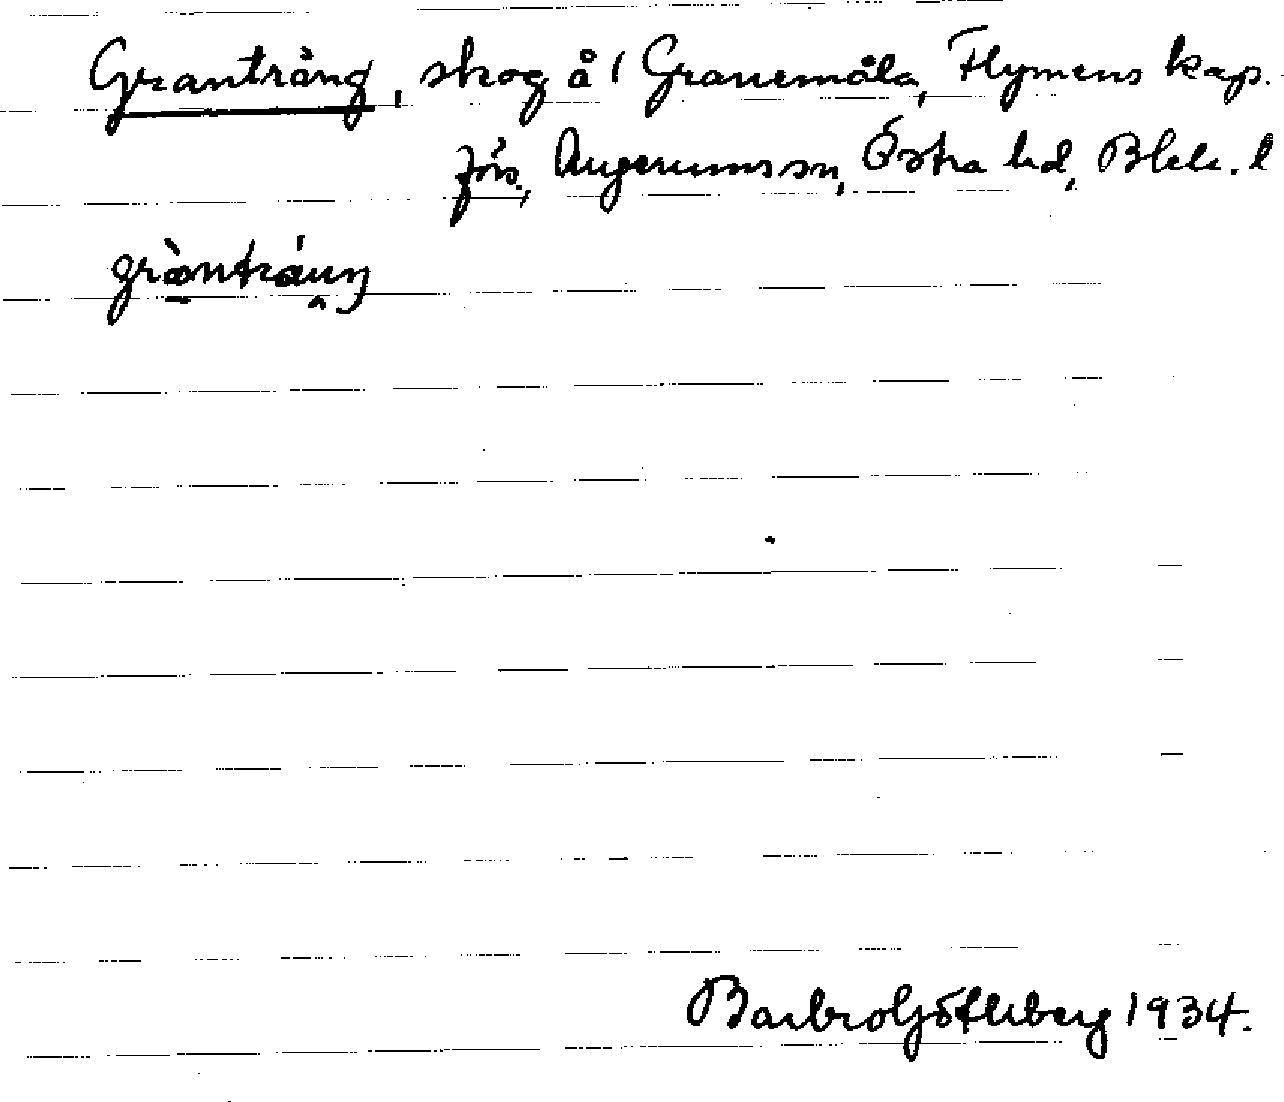 Granträng, skog å 1 Granemåla, Flymens kap.
förs., Augerums sn, Östra hd, Blek. l
Barbro Götleberg 1934.